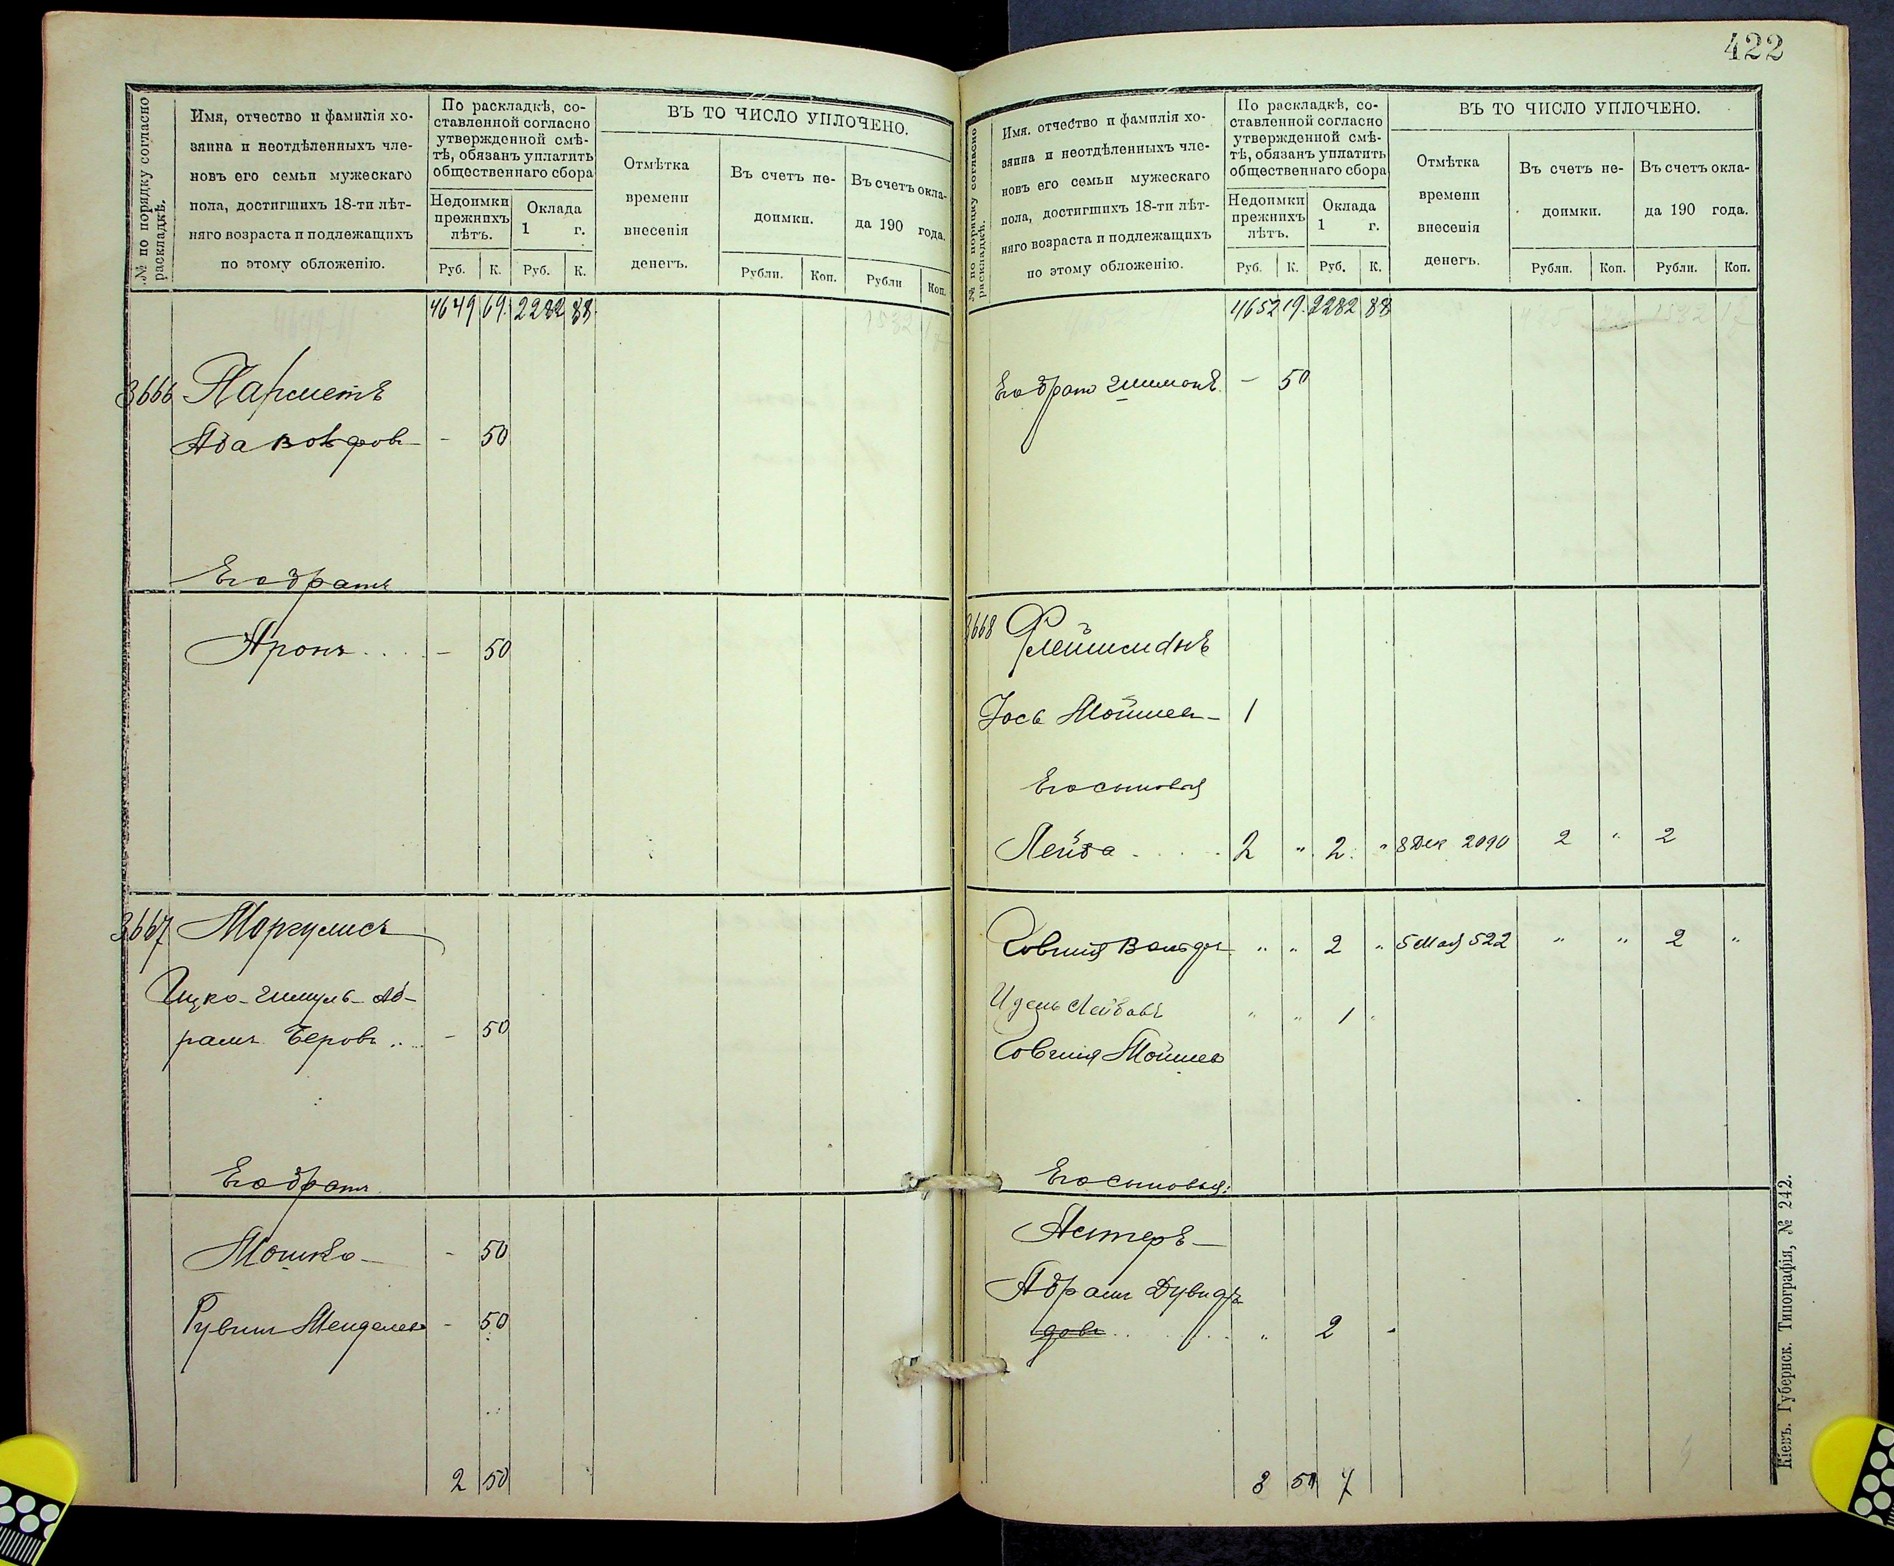 422
№ по порядку согласно раскладкѣ.
Имя, отчество и фамилія хо-
зяина и неотдѣленныхъ чле-
новъ его семьи мужескаго
пола, достигшихъ 18-ти лѣт-
няго возраста и подлежащихъ
по этому обложенію.
По раскладкѣ, со-
ставленной согласно
утвержденной смѣ-
тѣ, обязанъ уплатить
общественнаго сбора
Недоимки
прежнихъ
лѣтъ.
Оклада
1 г.
Руб. К. Руб. К.
ВЪ ТО ЧИСЛО УПЛОЧЕНО.
Отмѣтка
времени
внесенія
денегъ.
Въ счетъ не-
доимки.
Въ счетъ окла-
да 190 года.
Рубли. Коп. Рубли Коп.
4649 69. 2282 88.
3666
Аба - 50
Его братъ
Аронъ.... - 50
3667 Моргулисъ
Ицко-Шмуль-Аб-
рамъ Беровъ.... - 50
Его братъ
Мошко - - 50
Рувинъ Менделев - 50
2 50
№ по порядку согласно раскладкѣ.
Имя, отчество и фамилія хо-
зяина и неотдѣленныхъ чле-
новъ его семьи мужескаго
пола, достигшихъ 18-ти лѣт-
няго возраста и подлежащихъ
по этому обложенію.
По раскладкѣ, со-
ставленной согласно
утвержденной смѣ-
тѣ, обязанъ уплатить
общественнаго сбора
Недоимки
прежнихъ
лѣтъ.
Оклада
1 г.
Руб. К. Руб. К.
ВЪ ТО ЧИСЛО УПЛОЧЕНО.
Отмѣтка
времени
внесенія
денегъ.
Въ счетъ не-
доимки.
Въ счетъ окла-
да 190 года.
Рубли. Коп. Рубли. Коп.
4652 19. 2282 88
Его братъ Шимонъ. - 50
3668 Флейшманъ
Іось Мойшев- 1
Его сыновья
Лейба.... 2 " 2. " 8 Дек 2090 2 " 2
" " 2 " 5 Мая 522 " " 2 "
Лейбовъ " " 1 "
Мойшев
Его сыновья:
Абрамъ Дувидъ
" 2 "
3 50 7
Кіевъ. Губернск. Типографія, № 242.